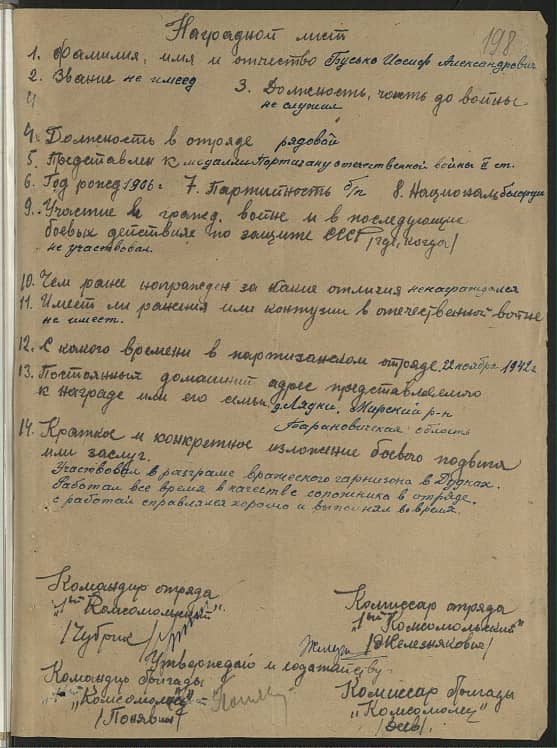 198
Наградной лист
1. Фамилия, имя и отчество Бусько Иосиф Александрович
2. Звание не имеед 3. Должность, часть до войны
не служил
4. Должность в отряде рядовой
5. Представлен к медалии Партизану отечественной войны II ст.
6. Год рожд 1906 г 7. Партитность б/п 8. Националь белорус
9. Участие в гражд. войне и в последующих
боевых действиях по защите СССР /где, когда/
не участвовал.
10. Чем ранее награжден за какие отличия ненаграждался
11. Имеет ли ранения или контузии в отечественной войне
не имеет.
12. С какого времени в партизанском отряде 22 ноября 1942 г
13. Постоянный домашний адрес представляемого
к награде или его семьи. д. Лядки. Мирский р-н
Барановичская область
14. Краткое и конкретное изложение боевого подвига
или заслуг.
Участвовал в разграме вражеского гарнизона в
Работал все время в качестве сапожника в отряде.
с работай справлялся хорошо и выполнял во время.
Командир отряда
"1ый Комсомольский"
/Чубрик/
Комиссар отряда
"1ый Комсомольский"
/Железнякович/
Утверждаю и ходатайствую
Командир бригады
"Комсомолец"
/Понявин/
Комиссар бригады
"Комсомолец"